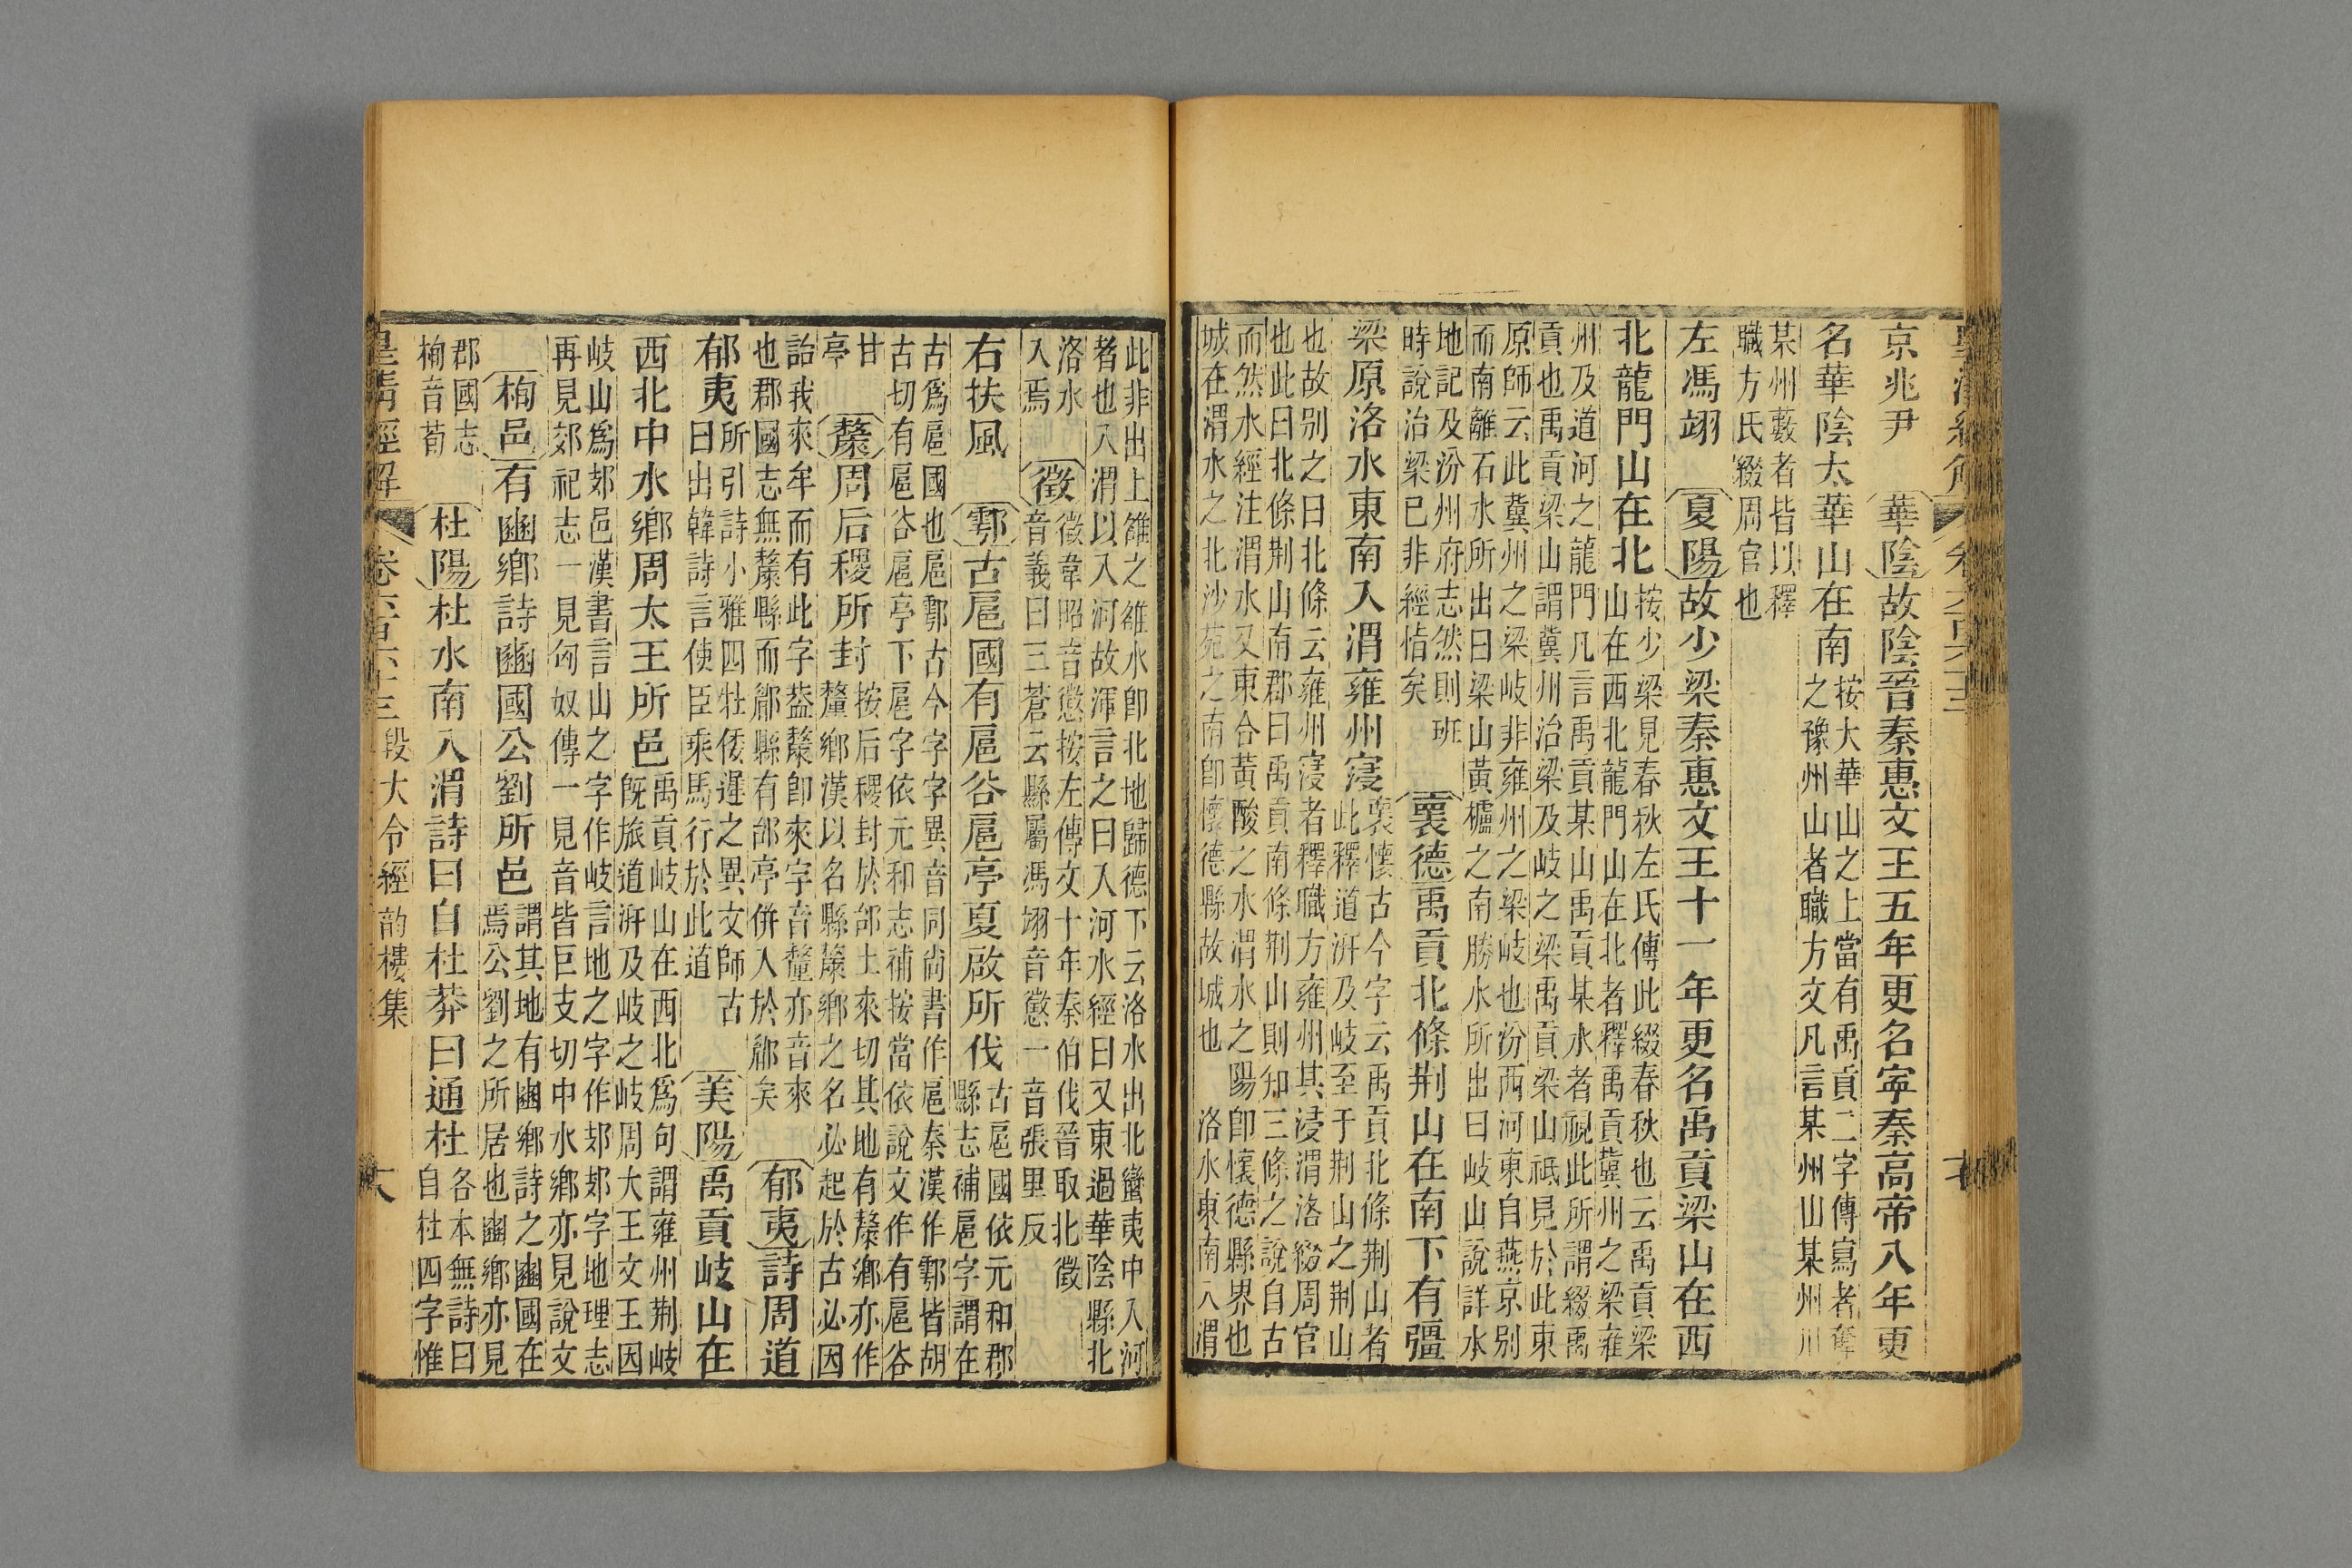 京兆尹
華陰故陰晉秦惠文王五年更名寕秦高帝八年更
名華陰太華山在南
按大華山之上當有禹貢二字傳寫者奪
之豫州山者職方文凡言某州山某州川
某州藪者皆以釋
職方氏綴周官也
左馮翊
夏陽故少梁秦惠文王十一年更名禹貢梁山在西
北龍門山在北
按少梁見春秋左氏傳此綴春秋也云禹貢梁
山在西北龍門山在北者釋禹貢冀州之梁雍
州及道河之龍門凡言禹貢某山禹貢某水者視此所謂綴禹
貢也禹貢梁山謂冀州治梁及岐之梁禹貢梁山祇見於此東
原師云此冀州之梁岐非雍州之梁岐也汾西河東自燕京别
而南離石水所出曰梁山黃櫨之南勝水所出曰岐山說詳水
地記及汾州府志然則班
時說治梁已非經恉矣
褱德禹貢北條荆山在南下有彊
梁原洛水東南入渭雍州寖
褱懷古今字云禹貢北條荆山者
此釋道汧及岐至于荆山之荆山
也故别之曰北條云雍州寖者釋職方雍州其浸渭洛綴周官
也此曰北條荆山南郡曰禹貢南條荆山則知三條之說自古
而然水經注渭水又東合黃酸之水渭水之陽卽懷德縣界也
城在渭水之北沙苑之南卽懷德縣故城也 洛水東南入渭
此非出上雒之雒水卽北地歸德下云洛水出北蠻夷中入河
者也入渭以入河故渾言之曰入河水經曰又東過華陰縣北
洛水
入焉
徵
徵韋昭音懲按左傳文十年秦伯伐晉取北徵
音義曰三蒼云縣屬馮翊音懲一音張里反
右扶風
鄠古扈國有扈谷扈亭夏啟所伐
古扈國依元和郡
縣志補扈字謂在
古爲扈國也扈鄠古今字字異音同尚書作扈秦漢作鄠皆胡
古切有扈谷扈亭下扈字依元和志補按當依說文作有扈谷
甘
亭
斄周后稷所封
按后稷封於邰土來切其地有斄鄉亦作
釐鄉漢以名縣斄鄉之名必起於古必因
詒我來牟而有此字葢斄卽來字音釐亦音來
也郡國志無斄縣而郿縣有邰亭併入於郿矣
郁夷詩周道
郁夷
所引詩小雅四牡倭遲之異文師古
曰出韓詩言使臣乘馬行於此道
美陽禹貢岐山在
西北中水鄉周太王所邑
禹貢岐山在西北爲句謂雍州荆岐
旣旅道汧及岐之岐周大王文王因
岐山爲郊邑漢書言山之字作岐言地之字作郊郊字地理志
再見郊祀志一見匈奴傳一見音皆巨支切中水鄉亦見說文
栒邑有豳鄉詩豳國公劉所邑
謂其地有豳鄉詩之豳國在
焉公劉之所居也豳鄉亦見
郡國志
栒音荀
杜陽杜水南入渭詩曰自杜莽曰通杜
各本無詩曰
自杜四字惟
皇清經解
卷六百六十三 段大令經韵樓集